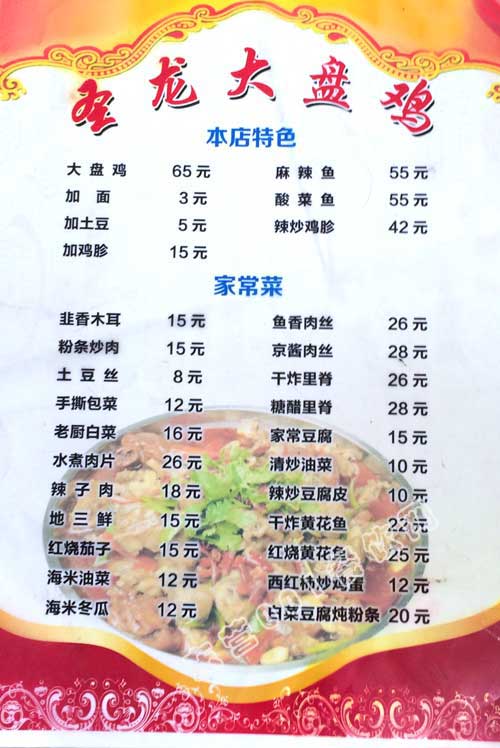 圣龙大盘鸡
本店特色
大盘鸡 65元 麻辣鱼 55元
加面 3元 酸菜鱼 55元
加土豆 5元 辣炒鸡胗 42元
加鸡胗 15元
家常菜
韭香木耳 15元 鱼香肉丝 26元
粉条炒肉 15元 京酱肉丝 28元
土豆丝 8元 干炸里脊 26元
手撕包菜 12元 糖醋里脊 28元
老厨白菜 16元 家常豆腐 15元
水煮肉片 26元 清炒油菜 10元
辣子肉 18元 辣炒豆腐皮 10元
地三鲜 15元 干炸黄花鱼 22元
红烧茄子 15元 红烧黄花鱼 25元
海米油菜 12元 西红柿炒鸡蛋 12元
海米冬瓜 12元 白菜豆腐炖粉条 20元